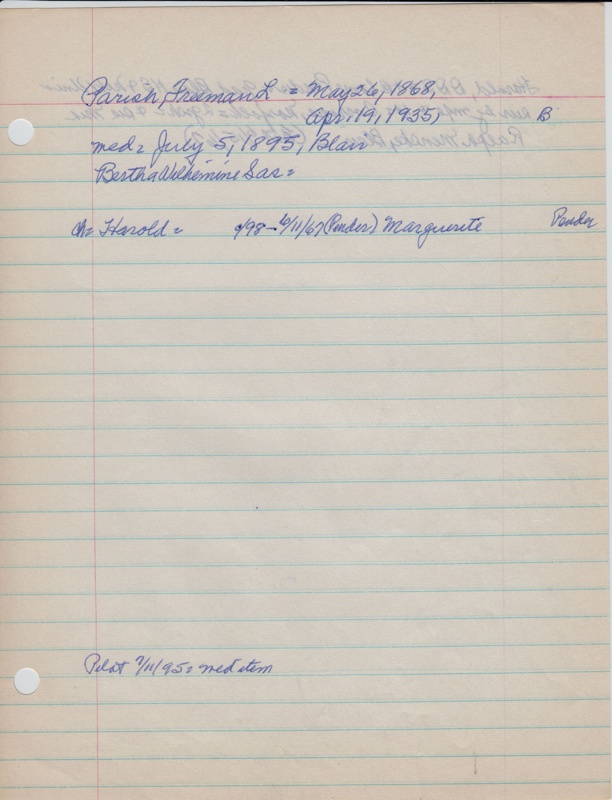 Parish, Freeman L = May 26, 1868,
Apr. 19, 1935, B
med = July 5, 1895, Blair
Bertha Wilhemine Sas =
ch = Harold = /98 - 6/11/67 (Pender) Marguerite Pender
Pilot 7/11/95 = med item